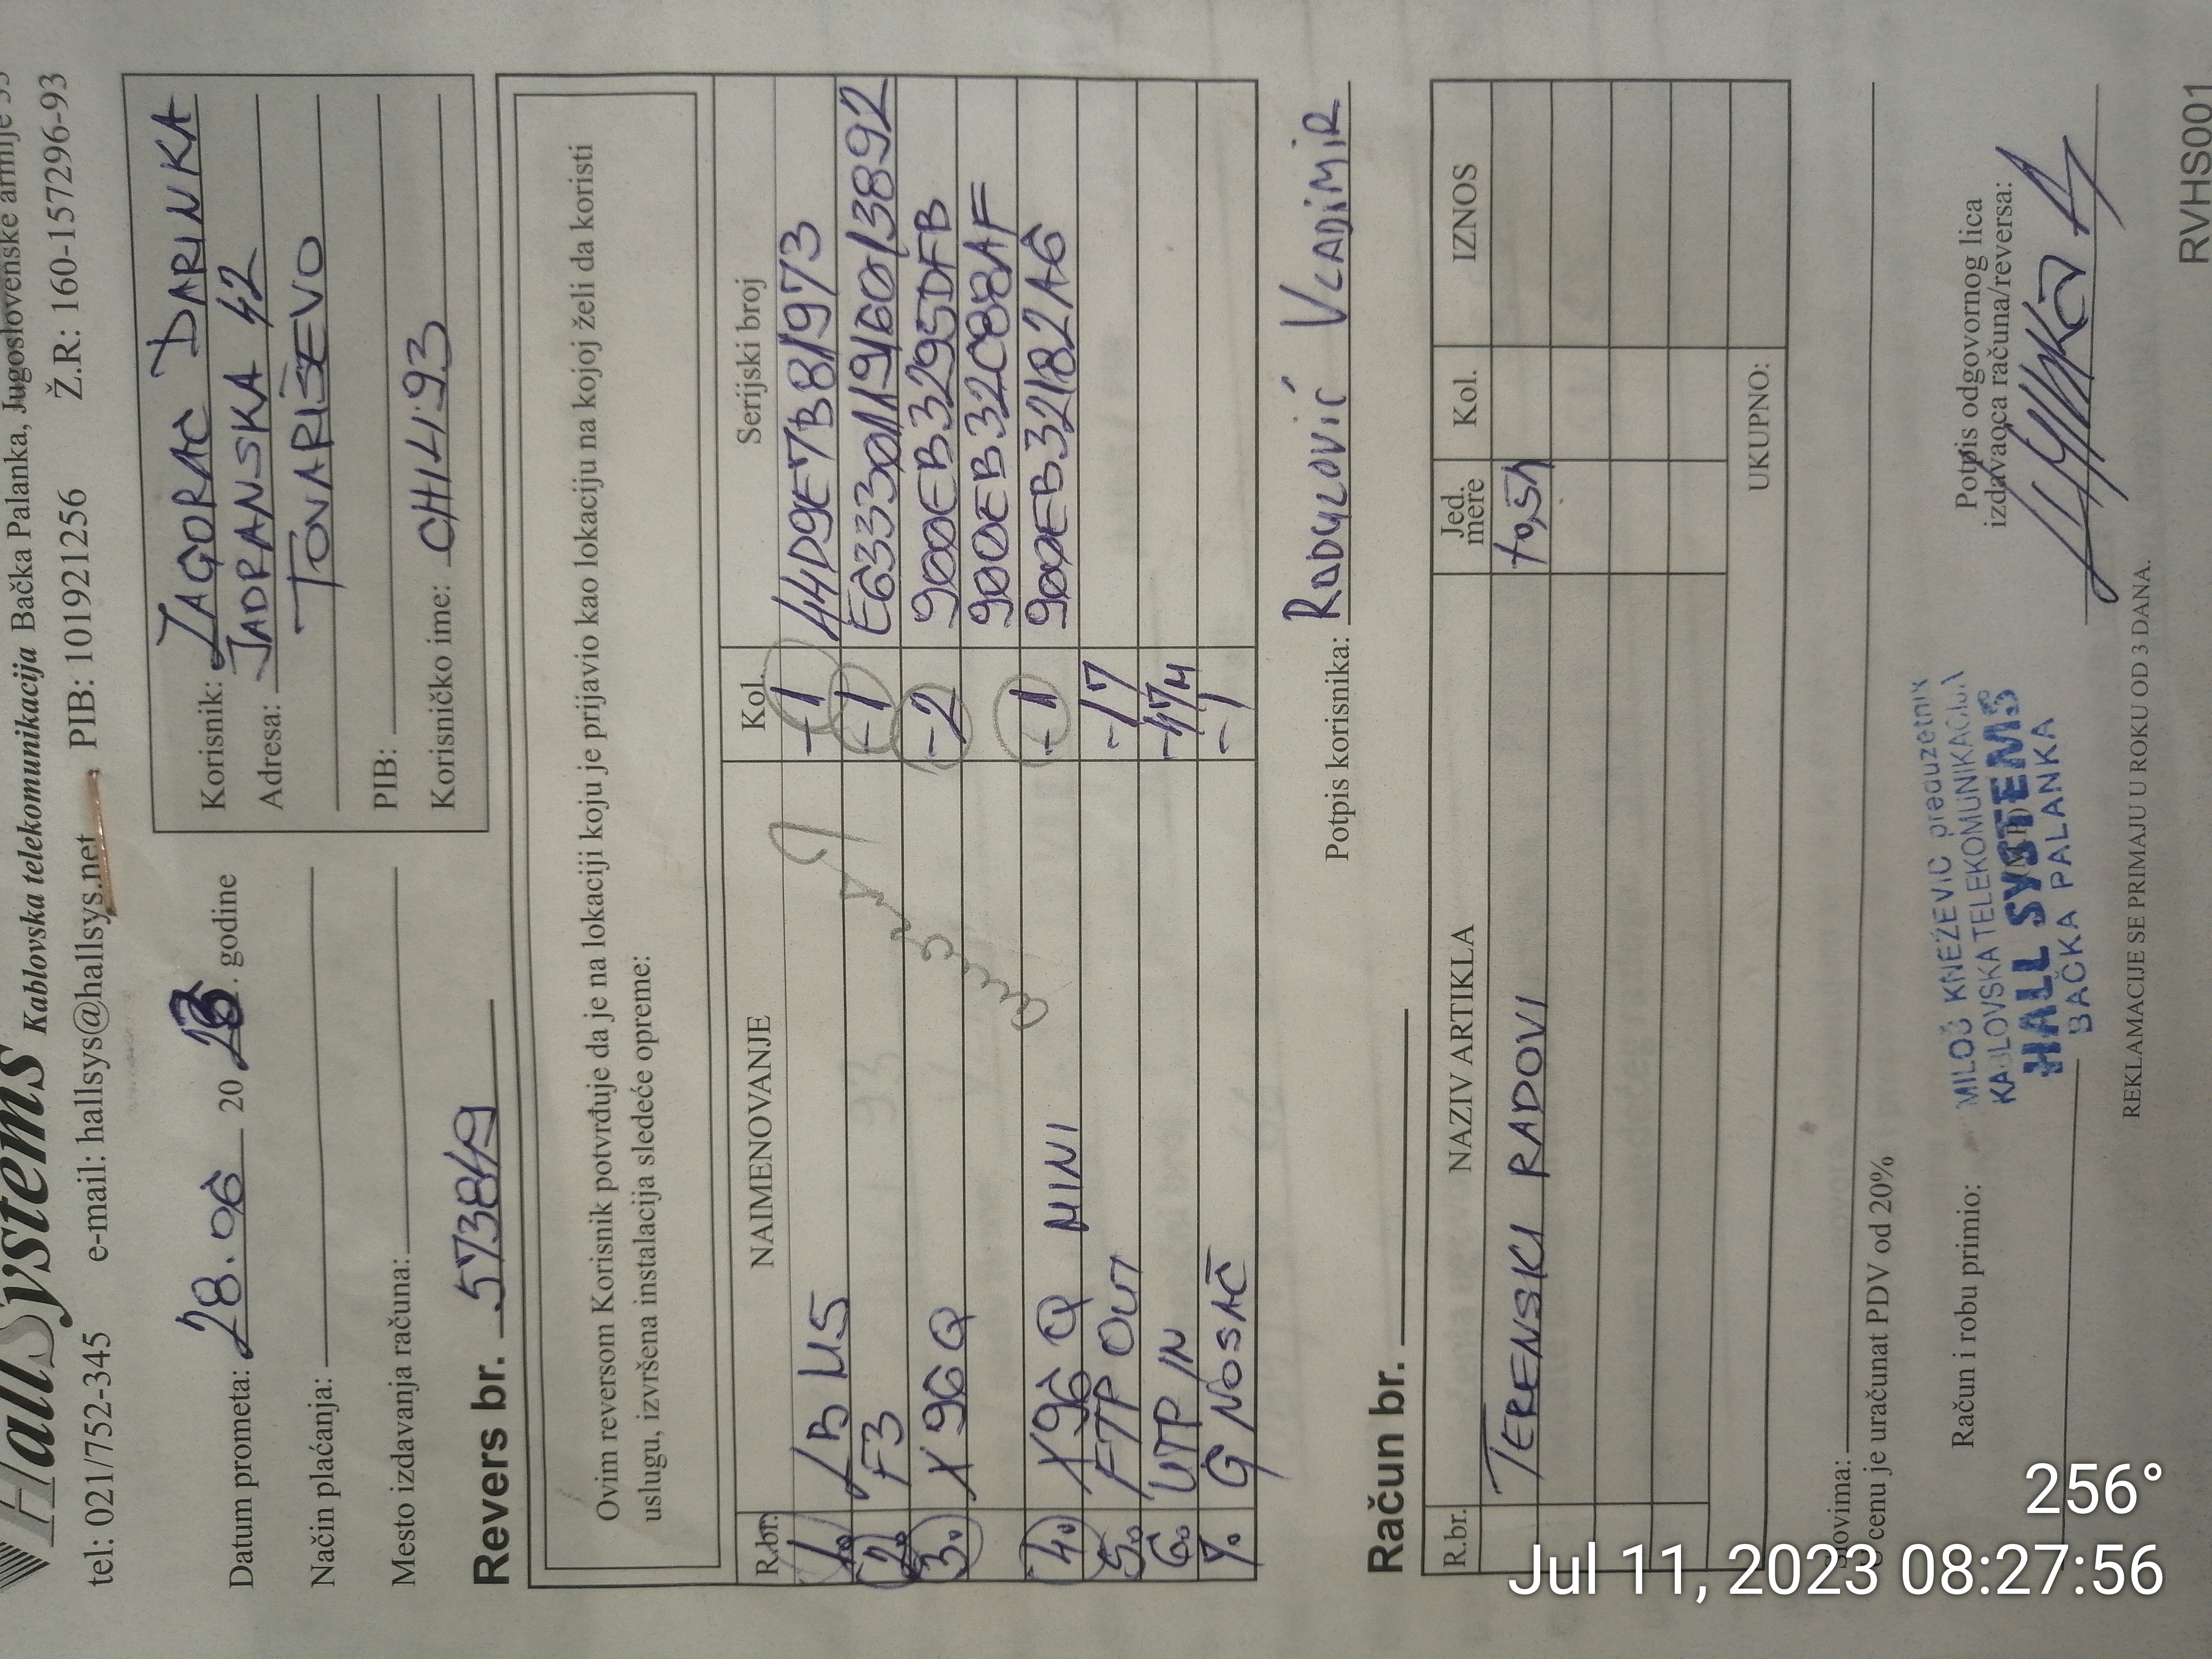 HallSystems Kablovska telekomunikacija Bačka Palanka, Jugoslovenske armije
tel: 021/752-345 e-mail: hallsys@hallsys.net PIB: 101921256 Ž.R.: 160-157296-93
Datum prometa: 28.06 2023. godine
Način plaćanja:
Mesto izdavanja računa:
Korisnik: ZAGORAC DARINKA
Adresa: JADRANSKA 42
TOVARIŠEVO
PIB:
Korisničko ime: CH4493
Revers br. 573849
Ovim reversom Korisnik potvrđuje da je na lokaciji koju je prijavio kao lokaciju na kojoj želi da koristi
uslugu, izvršena instalacija sledeće opreme:
R.br. NAIMENOVANJE Kol. Serijski broj
1. LB M5 -1 44D9E7B81973
2. F3 -1
3. X96Q -2 900EB3295DFB
900EB32C88AF
4. X96Q MINI -1 900EB32182A6
5. FTP OUT -17
6. UTP IN -47M
7. G NOSAČ -1
Potpis korisnika: RADULOVIĆ VLADIMIR
Račun br.
R.br. NAZIV ARTIKLA Jed. mere Kol. IZNOS
TERENSKI RADOVI
UKUPNO:
Slovima:
U cenu je uračunat PDV od 20%
Račun i robu primio:
MILOŠ KNEŽEVIĆ preduzetnik
KABLOVSKA TELEKOMUNIKACIJA
HALL SYSTEMS
BAČKA PALANKA
Potpis odgovornog lica
izdavaoca računa/reversa:
REKLAMACIJE SE PRIMAJU U ROKU OD 3 DANA.
RVHS001
256°
Jul 11, 2023 08:27:56